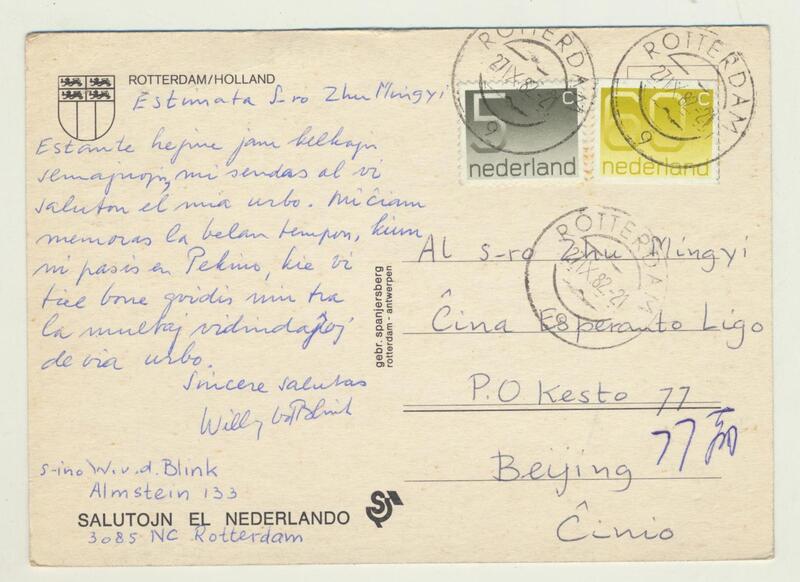 ROTTERDAM/HOLLAND
Estimata S-ro Zhu Mingyi
Estante hejme jam kelkajn
semajnojn, mi sendas al vi
saluton el mia urbo. Mi ĉiam
memoras la belan tempon, kiun
ni pasis en Pekino, kie vi
tiel bone gvidis nin tra
la multaj vidindaĵoj
de via urbo.
Sincere salutas
Willy vdBlink
s-ino W.v.d.Blink
Almstein 133
SALUTOJN EL NEDERLANDO
3085 NC Rotterdam
gebr. spanjersberg
rotterdam - antwerpen
5 c
nederland
60 c
nederland
ROTTERDAM
27 IX 82-21
6
ROTTERDAM
27 IX 82-21
6
ROTTERDAM
27 IX 82-21
Al s-ro Zhu Mingyi
Ĉina Esperanto Ligo
P.O Kesto 77
77
Beijing
Ĉinio